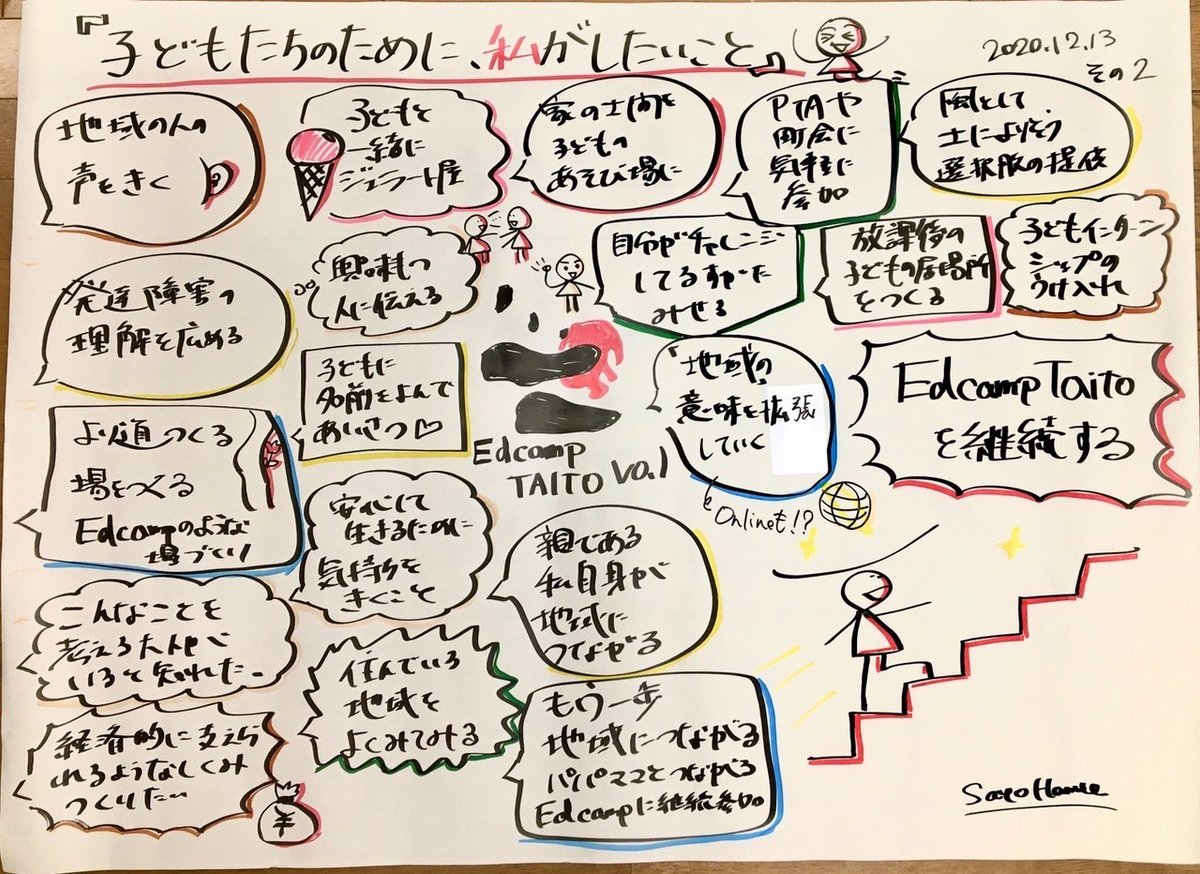 『子どもたちのために、私がしたいこと』
2020.12.13
その2
地域の人の
声をきく
子どもと
一緒に
ジェラート屋
家の土間を
子どもの
あそび場に
PTAや
町会に
気軽に
参加
風として
土によりそう
選択肢の提供
発達障害の
理解を広める
興味もつ
人に伝える
自分がチャレンジ
してるすがた
みせる
放課後の
子どもの居場所
をつくる
子どもインターン
シップの
うけ入れ
子どもに
名前をよんで
あいさつ♡
「地域の」
意味を拡張
していく
Onlineも!?
Edcamp Taito
を継続する
より道つくる
場をつくる
Edcampのような
場づくり
Edcamp
TAITO Vo.1
安心して
生きるために
気持ちを
きくこと
親である
私自身が
地域に
つながる
こんなことを
考える大人が
いると知れた。
住んでいる
地域を
よくみてみる
もう一歩
地域につながる
パパママとつながる
Edcampに継続参加
経済的に支えら
れるようなしくみ
つくりたい
¥